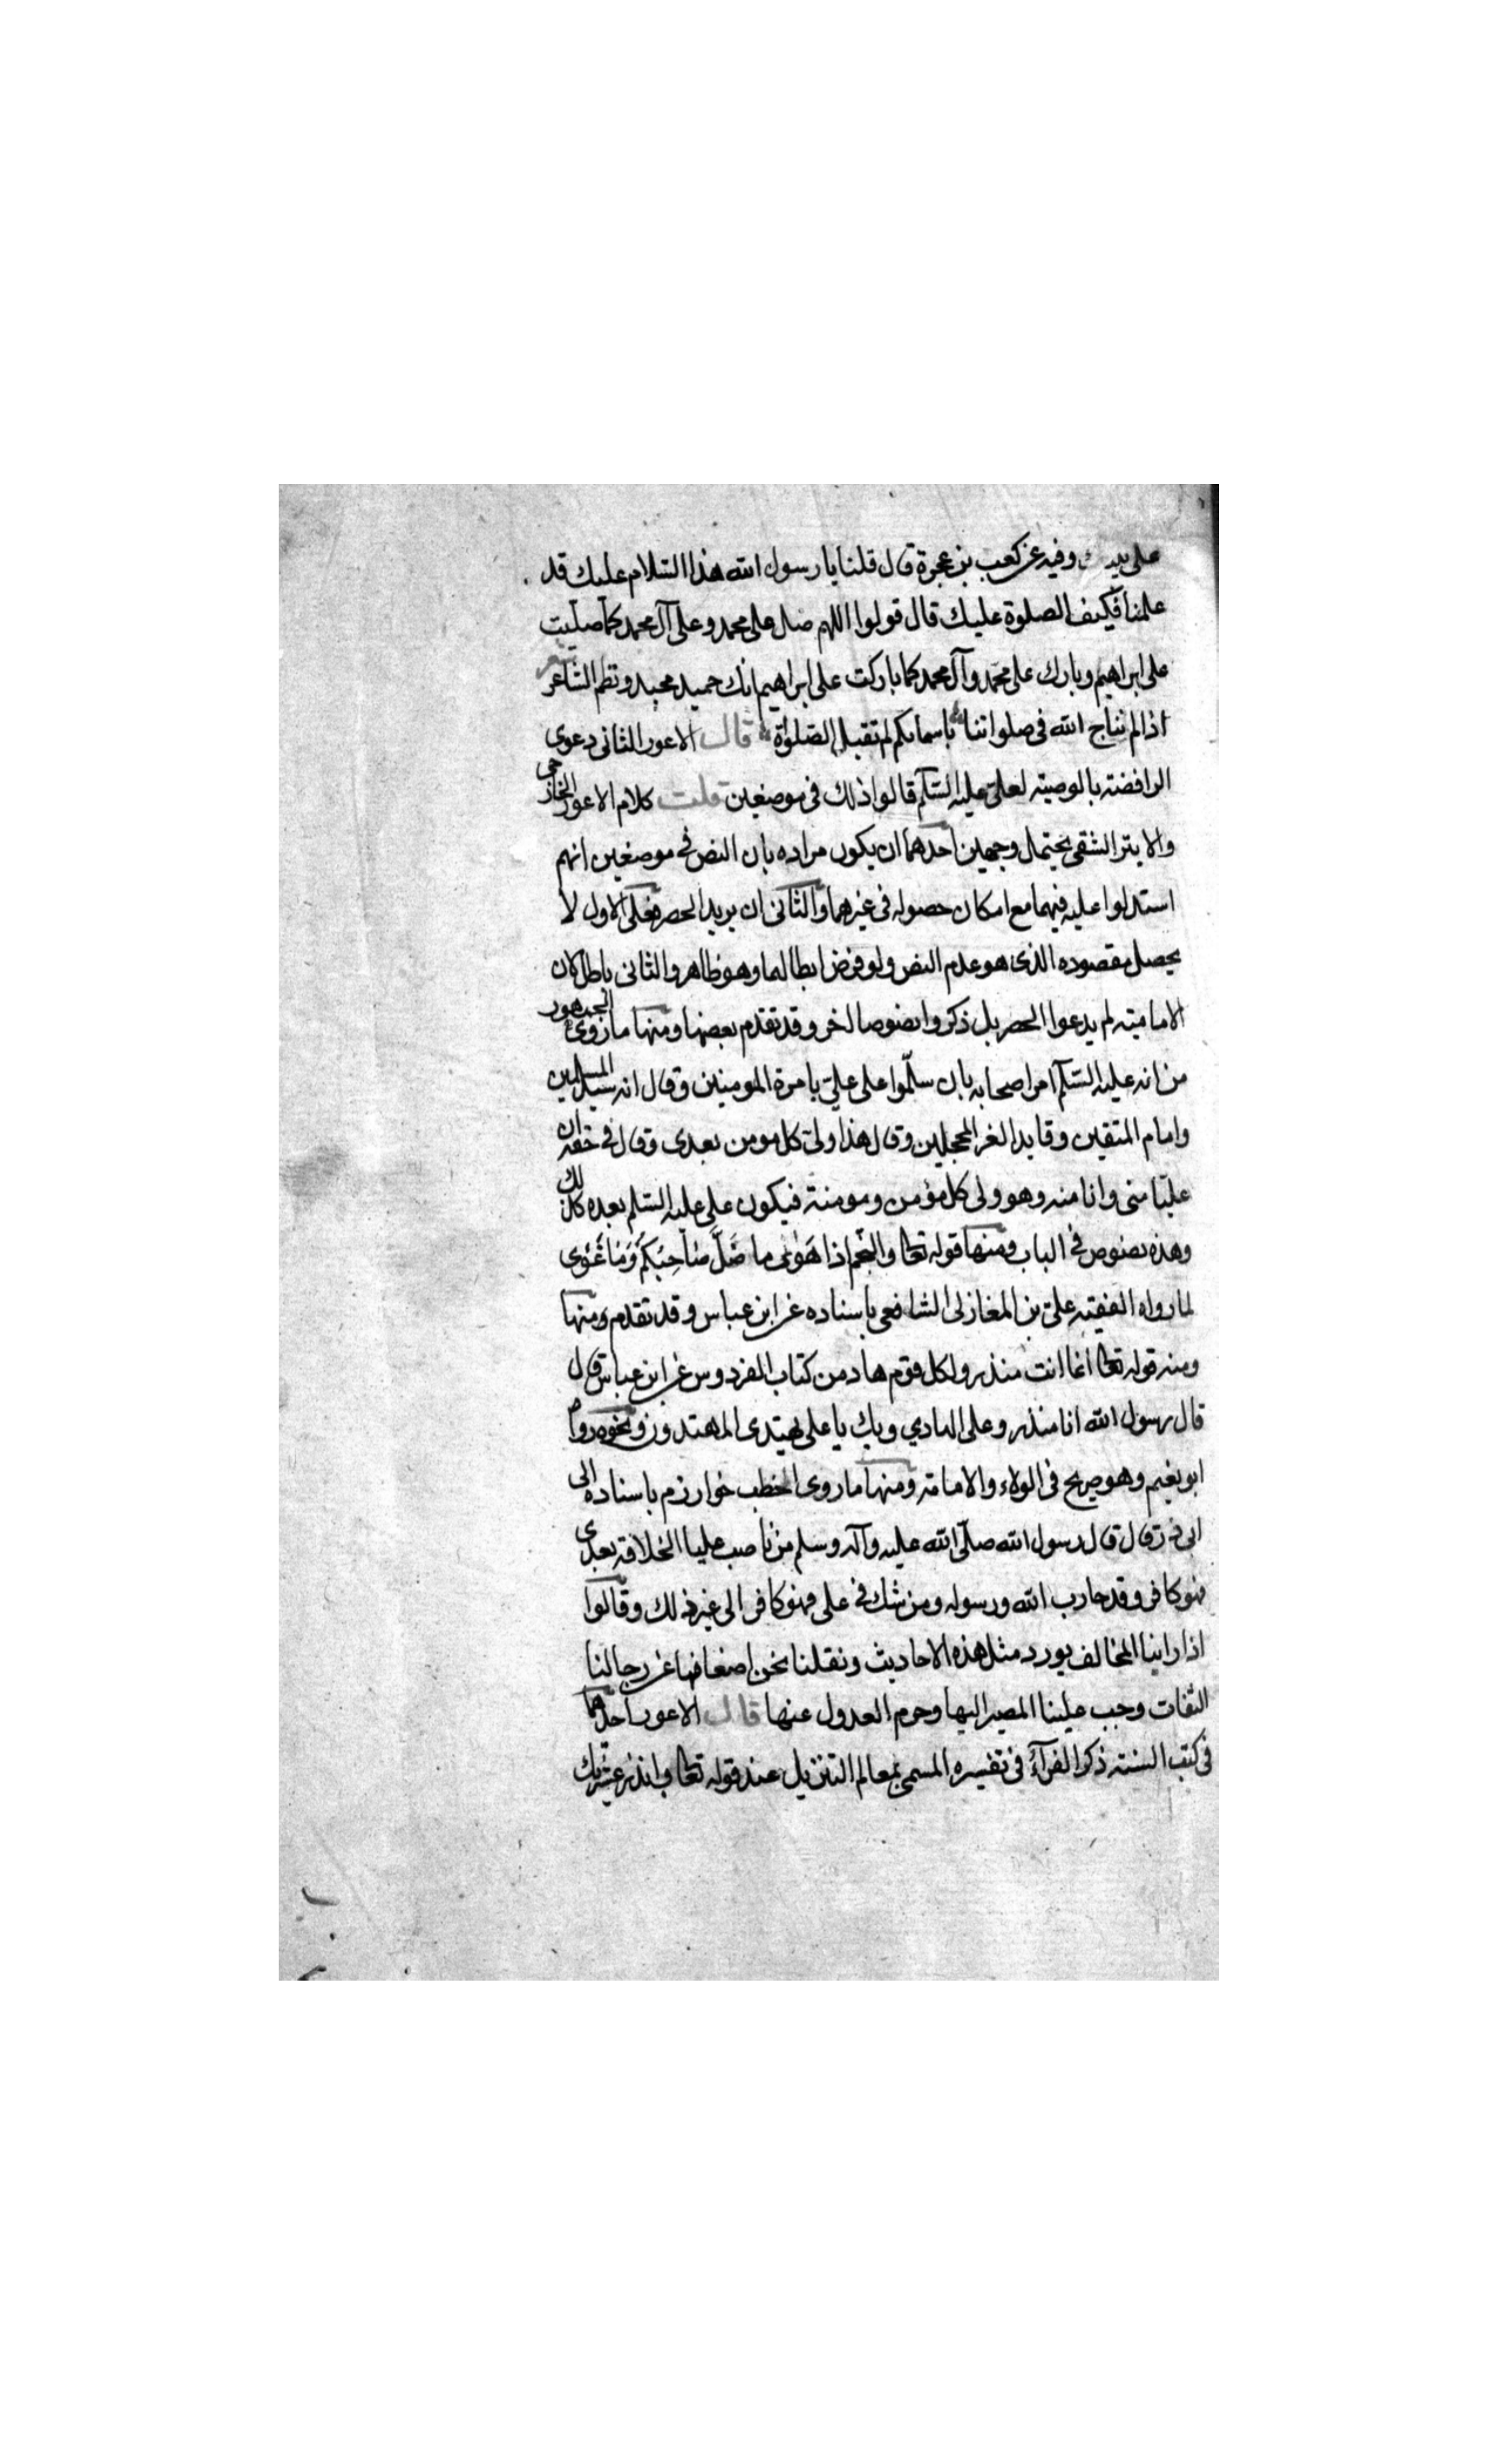 وفيه عن كعب بن عجرة قال قلنا يا رسول الله هذا السلام عليك قد
علمنا فكيف الصلوة عليك قال قولوا اللهم صل على محمد وعلى آل محمد كما صليت
على ابراهيم وبارك على محمد وآل محمد كما باركت على ابراهيم انك حميد مجيد ونظم الشاعر شعر
اذا لم نناج الله في صلواتنا باسمائكم لم تقبل الصلواة قال الاعور الثانى دعوى
الرافضة بالوصية لعلى عليه السلم قالوا ذلك فى موضعين قلت كلام الاعور الخارجى
والابتر الشقى يحتمل وجهين احدهما ان يكون مراده بان النص فى موضعين انهم
استدلوا عليه فيهما مع امكان حصوله فى غيرهما والثانى ان يريد الحصر فعلى الاول لا
يحصل مقصوده الذى هو عدم النص ولو فرض ابطالهما وهو ظاهر والثانى باطل لان
الامامية لم يدعوا الحصر بل ذكروا نصوصا اخر وقد تقدم بعضها ومنها ما روى الجمهور
من انه عليه السلم امر اصحابه بان سلّموا على علىّ بامرة المومنين وقال انه سيد المسلمين
وامام المتقين وقايد الغر المحجلين وقال هذا ولى كل مومن بعدى وقال فى حقه ان
عليّا منى وانا منه وهو ولى كل مؤمن ومومنة فيكون على عليه السلم بعده كذلك
وهذه نصوص فى الباب ومنها قوله تعالى والنّجم اذا هَوٰى ما ضَلَّ صاحِبُكُم وَمَا غَوٰى
لما رواه الفقيه على بن المغازلى الشافعى باسناده عن ابن عباس وقد تقدم ومنها
ومنه قوله تعالى انما انت منذر ولكل قوم هاد من كتاب الفردوس عن ابن عباس قال
قال رسول الله انا منذر وعلى الهادي وبك يا على يهتدى المهتدون ونحوه رواه
ابو نعيم وهو صريح فى الولاء والامامة ومنها ما روى اخطب خوارزم باسناده الى
ابى ذر قال قال رسول الله صلّى الله عليه وآله وسلم من ناصب عليا الخلافة بعدى
فهو كافر وقد حارب الله ورسوله ومن شك فى على فهو كافر الى غير ذلك وقالوا
اذا راينا المخالف يورد مثل هذه الاحاديث ونقلنا نحن اضعافها عن رجالنا
الثقات وجب علينا المصير اليها وحرم العدول عنها قال الاعور احدهما
فى كتب السنة ذكر الفرآء فى تفسيره المسمى بمعالم التنزيل عند قوله تعالى وانذر عشيرتك